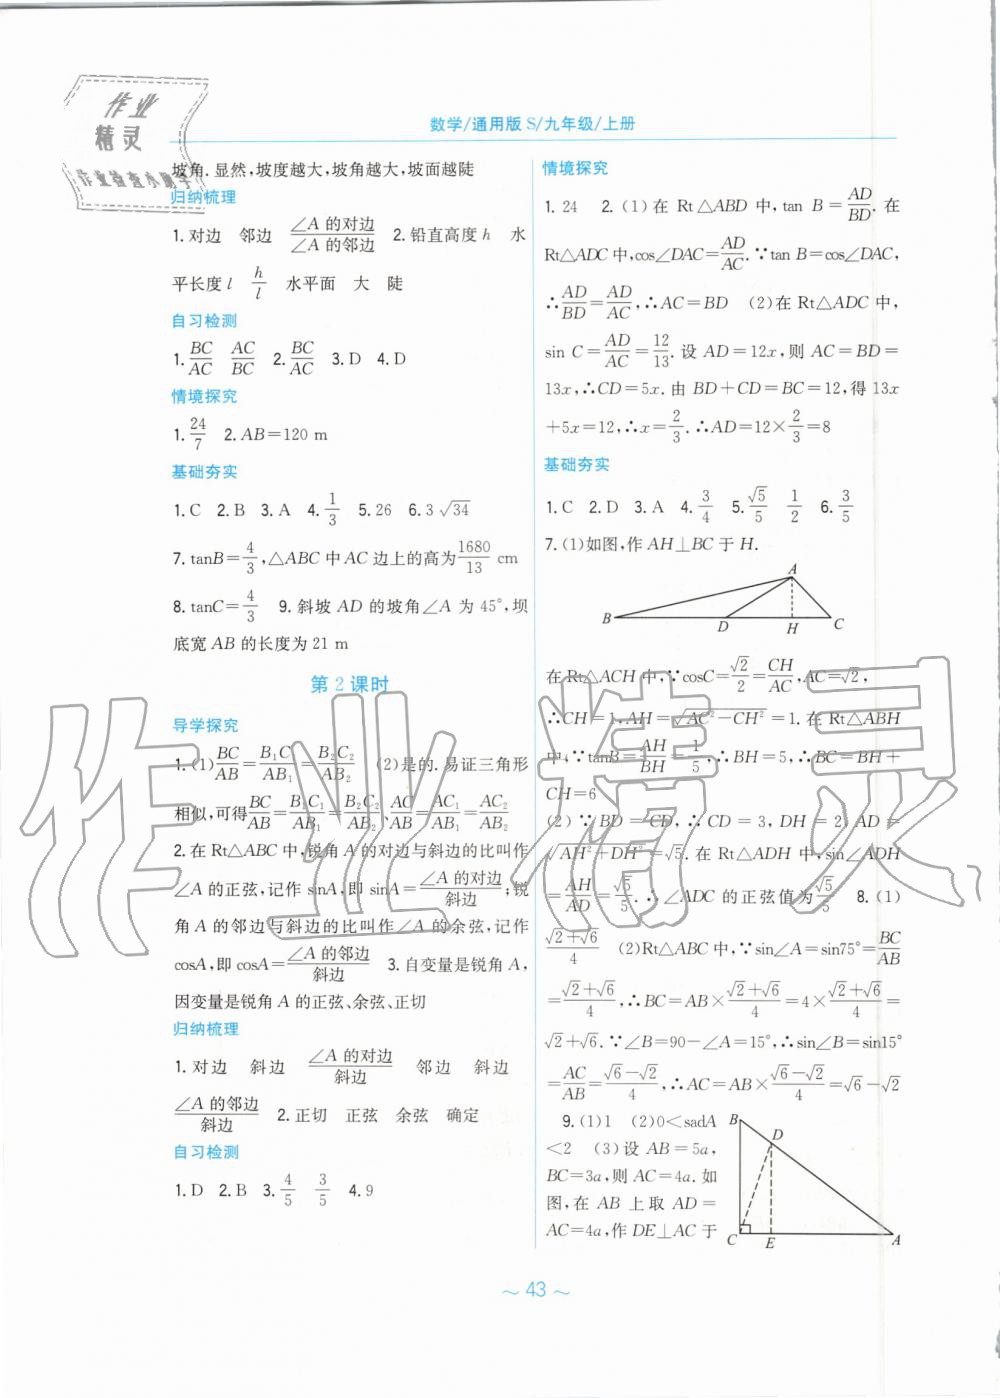 作业
精灵
作业检查小助手
数学/通用版 S/九年级/上册
坡角. 显然,坡度越大,坡角越大,坡面越陡
归纳梳理
1. 对边 邻边 ∠A 的对边/∠A 的邻边 2. 铅直高度 h 水
平长度 l h/l 水平面 大 陡
自习检测
1. BC/AC AC/BC 2. BC/AC 3. D 4. D
情境探究
1. 24/7 2. AB=120 m
基础夯实
1. C 2. B 3. A 4. 1/3 5. 26 6. 3√34
7. tanB=4/3,△ABC 中 AC 边上的高为1680/13 cm
8. tanC=4/3 9. 斜坡 AD 的坡角∠A 为 45°,坝
底宽 AB 的长度为 21 m
第 2 课时
导学探究
1. (1)BC/AB=B₁C₁/AB₁=B₂C₂/AB₂ (2)是的. 易证三角形
相似,可得BC/AB=B₁C₁/AB₁=B₂C₂/AB₂、AC/AB=AC₁/AB₁=AC₂/AB₂
2. 在 Rt△ABC 中,锐角 A 的对边与斜边的比叫作
∠A 的正弦,记作 sinA,即 sinA=∠A 的对边/斜边;锐
角 A 的邻边与斜边的比叫作∠A 的余弦,记作
cosA,即 cosA=∠A 的邻边/斜边 3. 自变量是锐角 A,
因变量是锐角 A 的正弦、余弦、正切
归纳梳理
1. 对边 斜边 ∠A 的对边/斜边 邻边 斜边
∠A 的邻边/斜边 2. 正切 正弦 余弦 确定
自习检测
1. D 2. B 3. 4/5 3/5 4. 9
情境探究
1. 24 2. (1)在 Rt△ABD 中,tan B=AD/BD. 在
Rt△ADC 中,cos∠DAC=AD/AC. ∵tan B=cos∠DAC,
∴AD/BD=AD/AC,∴AC=BD (2)在 Rt△ADC 中,
sin C=AD/AC=12/13. 设 AD=12x,则 AC=BD=
13x,∴CD=5x. 由 BD+CD=BC=12,得 13x
+5x=12,∴x=2/3. ∴AD=12×2/3=8
基础夯实
1. C 2. D 3. A 4. 3/4 5. √5/5 1/2 6. 3/5
7. (1)如图,作 AH⊥BC 于 H.
A
B D H C
在 Rt△ACH 中,∵cosC=√2/2=CH/AC,AC=√2,
∴CH=1,AH=√(AC²-CH²)=1. 在 Rt△ABH
中,∵tanB=AH/BH=1/5,∴BH=5,∴BC=BH+
CH=6
(2)∵BD=CD,∴CD=3,DH=2,AD=
√(AH²+DH²)=√5. 在 Rt△ADH 中,sin∠ADH
=AH/AD=√5/5. ∴∠ADC 的正弦值为√5/5 8. (1)
(√2+√6)/4 (2)Rt△ABC 中,∵sin∠A=sin75°=BC/AB
=(√2+√6)/4,∴BC=AB×(√2+√6)/4=4×(√2+√6)/4=
√2+√6. ∵∠B=90-∠A=15°,∴sin∠B=sin15°
=AC/AB=(√6-√2)/4,∴AC=AB×(√6-√2)/4=√6-√2
9. (1)1 (2)0<sadA
<2 (3)设 AB=5a,
BC=3a,则 AC=4a. 如
图,在 AB 上取 AD=
AC=4a,作 DE⊥AC 于
B
D
C E A
~ 43 ~
作业精灵